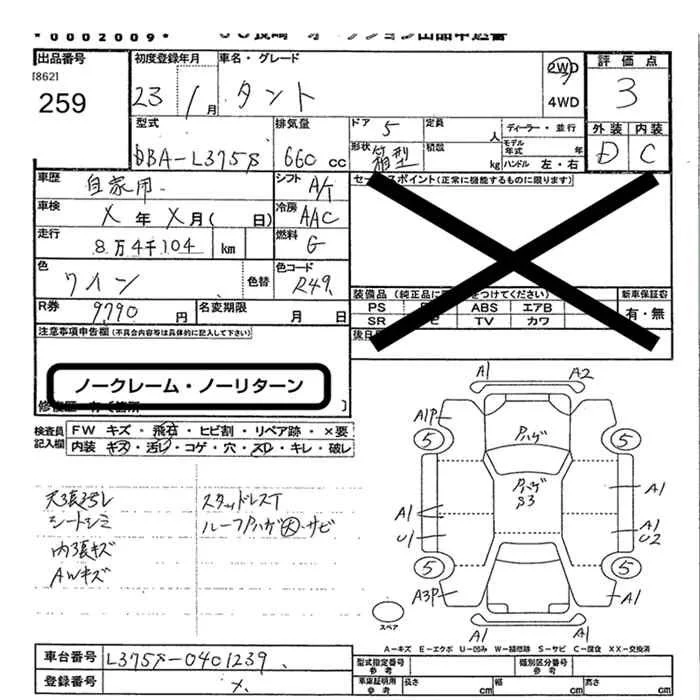 *0002009*
出品番号
[862]
259
初度登録年月
23 / 1月
車名・グレード
タント
2WD
4WD
評価点
3
外装 内装
D C
型式
DBA-L375S
排気量
660 cc
ドア 5
形状 箱型
定員 人
積載 kg
ディーラー・並行
モデル年式 年
ハンドル 左・右
車歴
自家用
シフト A/T
車検
X年X月( 日)
冷房 AAC
走行
8万4千104 km
燃料 G
色
ワイン
色替
色コード R49
R券 9790円
名変期限 月 日
セールスポイント(正常に機能するものに限ります)
装備品(純正品に をつけてください)
PS ABS エアB
SR TV カワ
新車保証書
有・無
注意事項申告欄(不具合内容等は具体的に記入して下さい)
ノークレーム・ノーリターン
検査員記入欄
FW キズ・飛石・ヒビ割・リペア跡・×要
内装 キズ・汚レ・コゲ・穴・スレ・キレ・破レ
天張汚レ
シートシミ
内張キズ
AWキズ
スタッドレスT
ルーフPハゲ大・サビ
A1 A2
A1P
5 5
Pハゲ
Pハゲ
S3
A1 A1
U1 A1
U2
5 5
A3P A1
A1 A1
スペア
A-キズ E-エクボ U-凹み W-補修跡 S-サビ C-腐食 XX-交換済
車台番号 L375S-0401239
登録番号 X
型式指定番号 参考
類別区分番号 参考
車庫証明用 参考
長さ cm 幅 cm 高さ cm